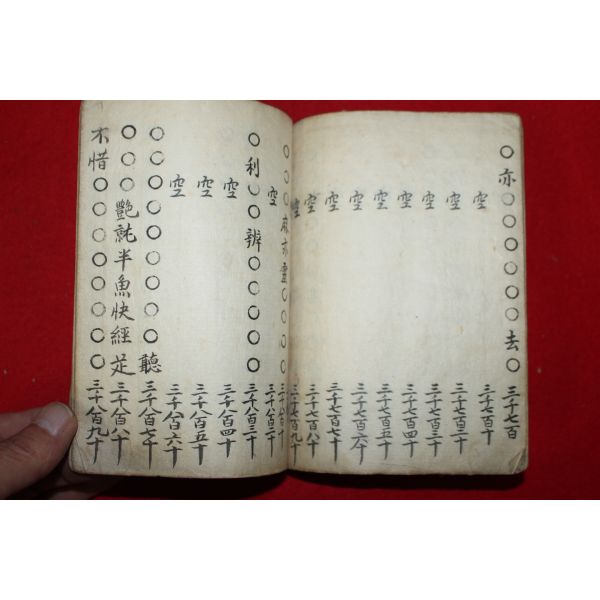 ○亦○○○○○○去○ 三千七百
空 三千七百十
空 三千七百二十
空 三千七百三十
空 三千七百四十
空 三千七百五十
空 三千七百六十
空 三千七百七十
空 三千七百八十
空 三千七百九十
○○○麻亦○○○○ 三千八百十
空 三千八百二十
○利○○辨○○○○○ 三千八百三十
空 三千八百四十
空 三千八百五十
空 三千八百六十
○○○○○○○○○聽 三千八百七十
○○○艷半魚快經足 三千八百八十
不惜○○○○○○○○ 三千八百九十